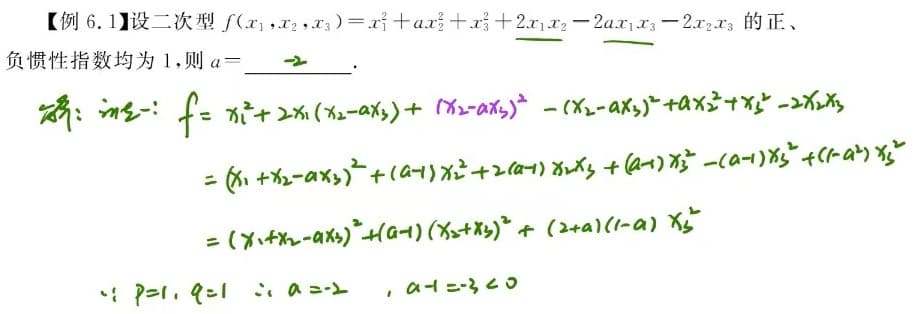 【例 6.1】设二次型 f(x₁,x₂,x₃)=x₁²+ax₂²+x₃²+2x₁x₂-2ax₁x₃-2x₂x₃ 的正、
负惯性指数均为 1,则 a= -2 .
解: 法一: f= x₁²+2x₁(x₂-ax₃)+(x₂-ax₃)² -(x₂-ax₃)²+ax₂²+x₃²-2x₂x₃
= (x₁+x₂-ax₃)²+(a-1)x₂²+2(a-1)x₂x₃+(a-1)x₃²-(a-1)x₃²+(1-a²)x₃²
= (x₁+x₂-ax₃)²+(a-1)(x₂+x₃)²+(2+a)(1-a)x₃²
∵ p=1, q=1 ∴ a=-2 , a-1=-3<0